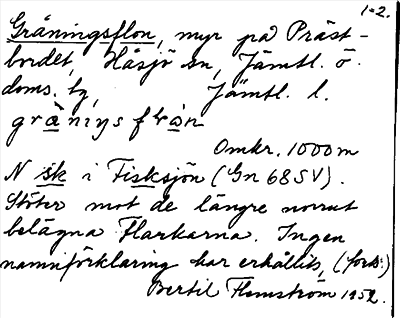 1-2.
Gråningsflon, myr på Präst-
bordet, Håsjö sn, Jämtl. ö.
doms. tg, Jämtl. l.
Omkr. 1000 m
N sk i Fisksjön (Gn 68 SV).
Stöter mot de längre norrut
belägna Flarkarna. Ingen
namnförklaring har erhållits, (forts.)
Bertil Flemström 1952.